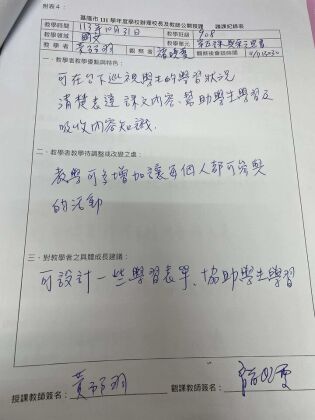 附表4：
基隆市 111 學年度學校辦理校長及教師公開授課 議課紀錄表
教學時間 113年10月31日 教學班級 908
教學領域 國文 教學單元
教學者 黃郁羽 觀察者 觀察後會談時間
一、教學者教學優點與特色：
可在台下巡視學生的學習狀況
清楚表達課文內容、幫助學生學習及
吸收內容知識.
二、教學者教學待調整或改變之處：
教學可多增加讓每個人都可參與
的活動
三、對教學者之具體成長建議：
可設計一些學習表單、協助學生學習
授課教師簽名： 觀課教師簽名：